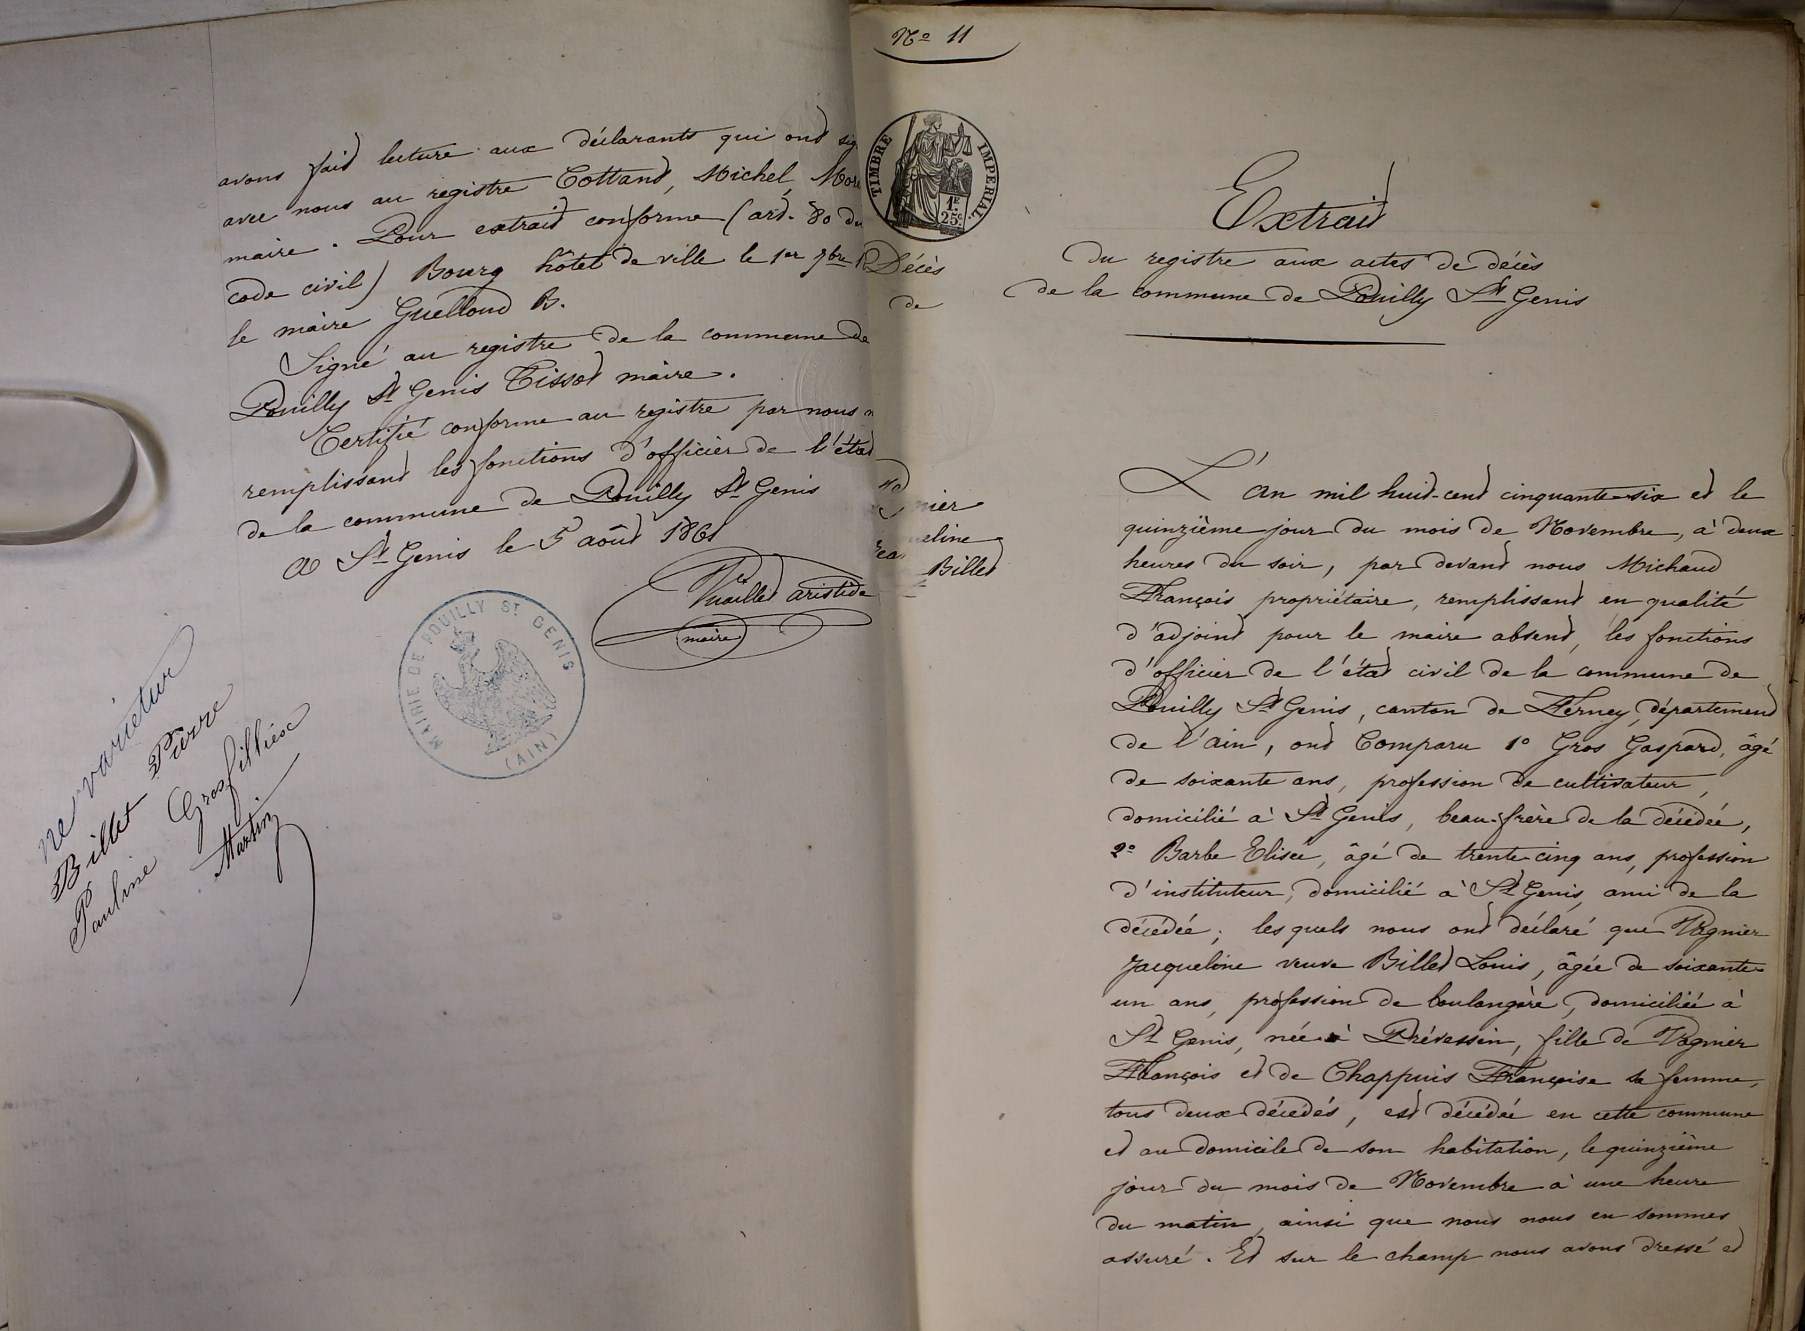 avons fait lecture aux déclarants qui ont sig
avec nous au registre Cottand, Michel, More
maire. Pour extrait conforme (art. 80 du
code civil) Bourg hôtel de ville le 1er 7bre
le maire Guelloud B.
Signé au registre de la commune de
Pouilly St Genis Tissot maire.
Certifié conforme au registre par nous
remplissant les fonctions d'officier de l'état
de la commune de Pouilly St Genis
A St Genis le 5 août 1861
Vuaillet aristide
maire
MAIRIE DE POUILLY ST GENIS
(AIN)
ne varietur
Billet Pierre
Pauline Grosfilliex
Martin
No 11
TIMBRE IMPERIAL.
1F
25c
Décès
de
gnier
eline
Billet
Extrait
du registre aux actes de décès
de la commune de Pouilly St Genis
L'an mil huit-cent cinquante-six et le
quinzième jour du mois de Novembre, à deux
heures du soir, par devant nous Michaud
François propriétaire, remplissant en qualité
d'adjoint pour le maire absent, les fonctions
d'officier de l'état civil de la commune de
Pouilly St Genis, canton de Ferney, département
de l'ain, ont Comparu 1o Gros Gaspard, âgé
de soixante ans, profession de cultivateur,
domicilié à St Genis, beau-frère de la décédée,
2o Barbe Elisée, âgé de trente-cinq ans, profession
d'instituteur, domicilié à St Genis, ami de la
décédée; les quels nous ont déclaré que Vagnier
Jacqueline veuve Billet Louis, âgée de soixante-
un ans, profession de boulangère, domiciliée à
St Genis, née à Prévessin, fille de Vagnier
François et de Chappuis Françoise sa femme,
tous deux décédés, est décédée en cette commune
et au domicile de son habitation, le quinzième
jour du mois de Novembre à une heure
du matin, ainsi que nous nous en sommes
assuré. Et sur le champ nous avons dressé et